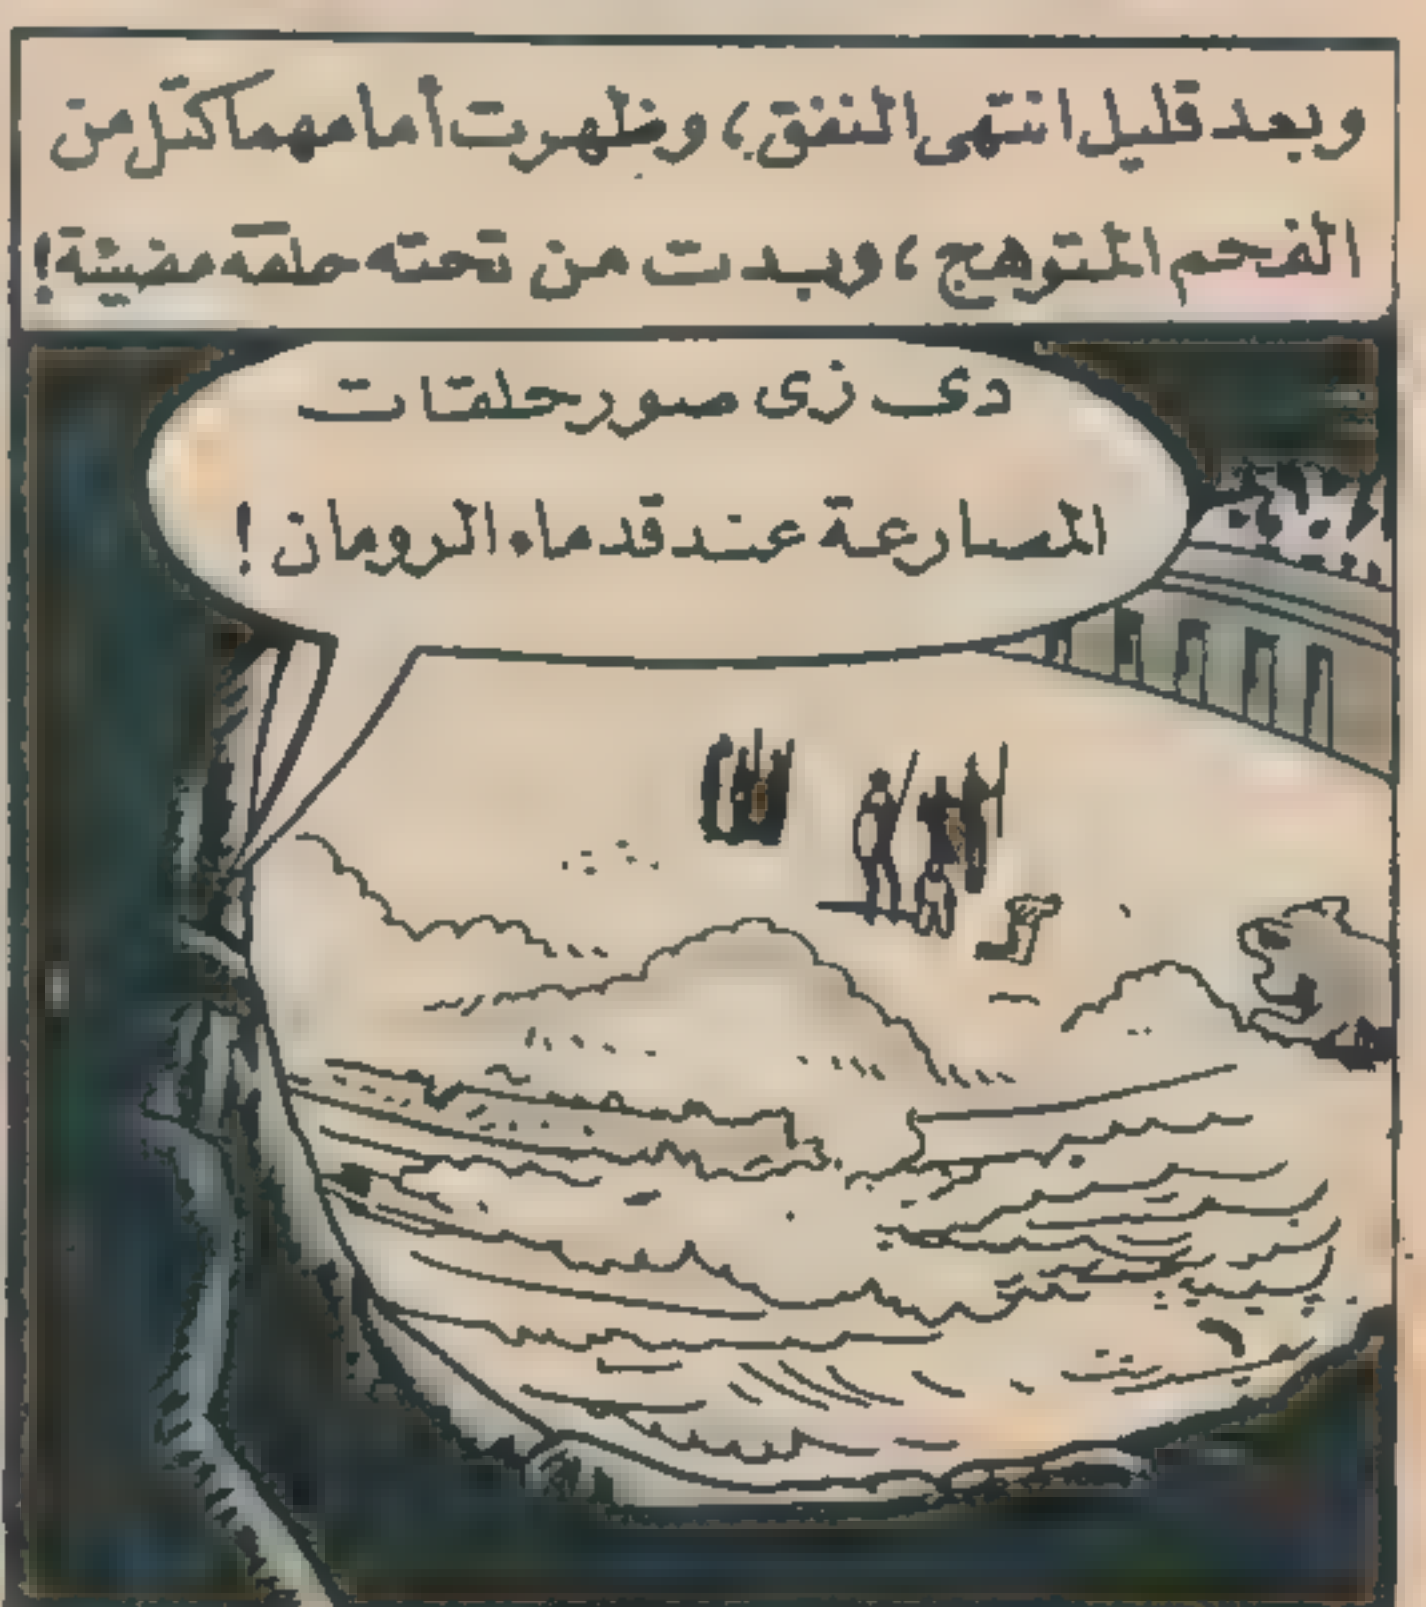 وبعد قليل انتهى النفق، وظهرت أمامهما كتل من
الفحم المتوهج، وبدت من تحته حلقة مضيئة!
دى زى صور حلقات
المصارعة عند قدماء الرومان!